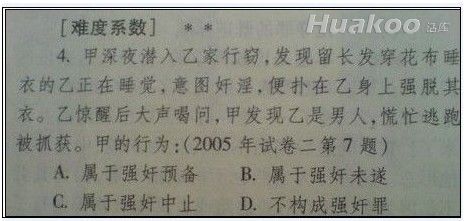 Huakoo 活库
[难度系数] * *
4. 甲深夜潜入乙家行窃,发现留长发穿花布睡
衣的乙正在睡觉,意图奸淫,便扑在乙身上强脱其
衣。乙惊醒后大声喝问,甲发现乙是男人,慌忙逃跑
被抓获。甲的行为:(2005 年试卷二第 7 题)
A. 属于强奸预备 B. 属于强奸未遂
C. 属于强奸中止 D. 不构成强奸罪